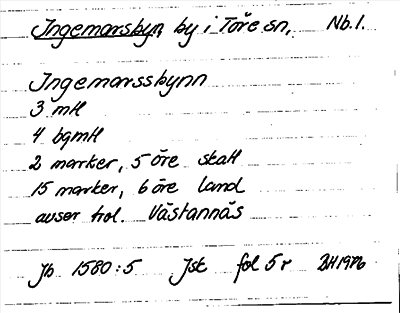 Ingemarsbyn, by i Töre sn, Nb.l.
Ingemarssbynn
3 mtl
4 bgmtl
2 marker, 5 öre skatt
15 marker, 6 öre land
avser trol. Västannäs
Jb 1580:5 Jsk fol 5r BH 1976